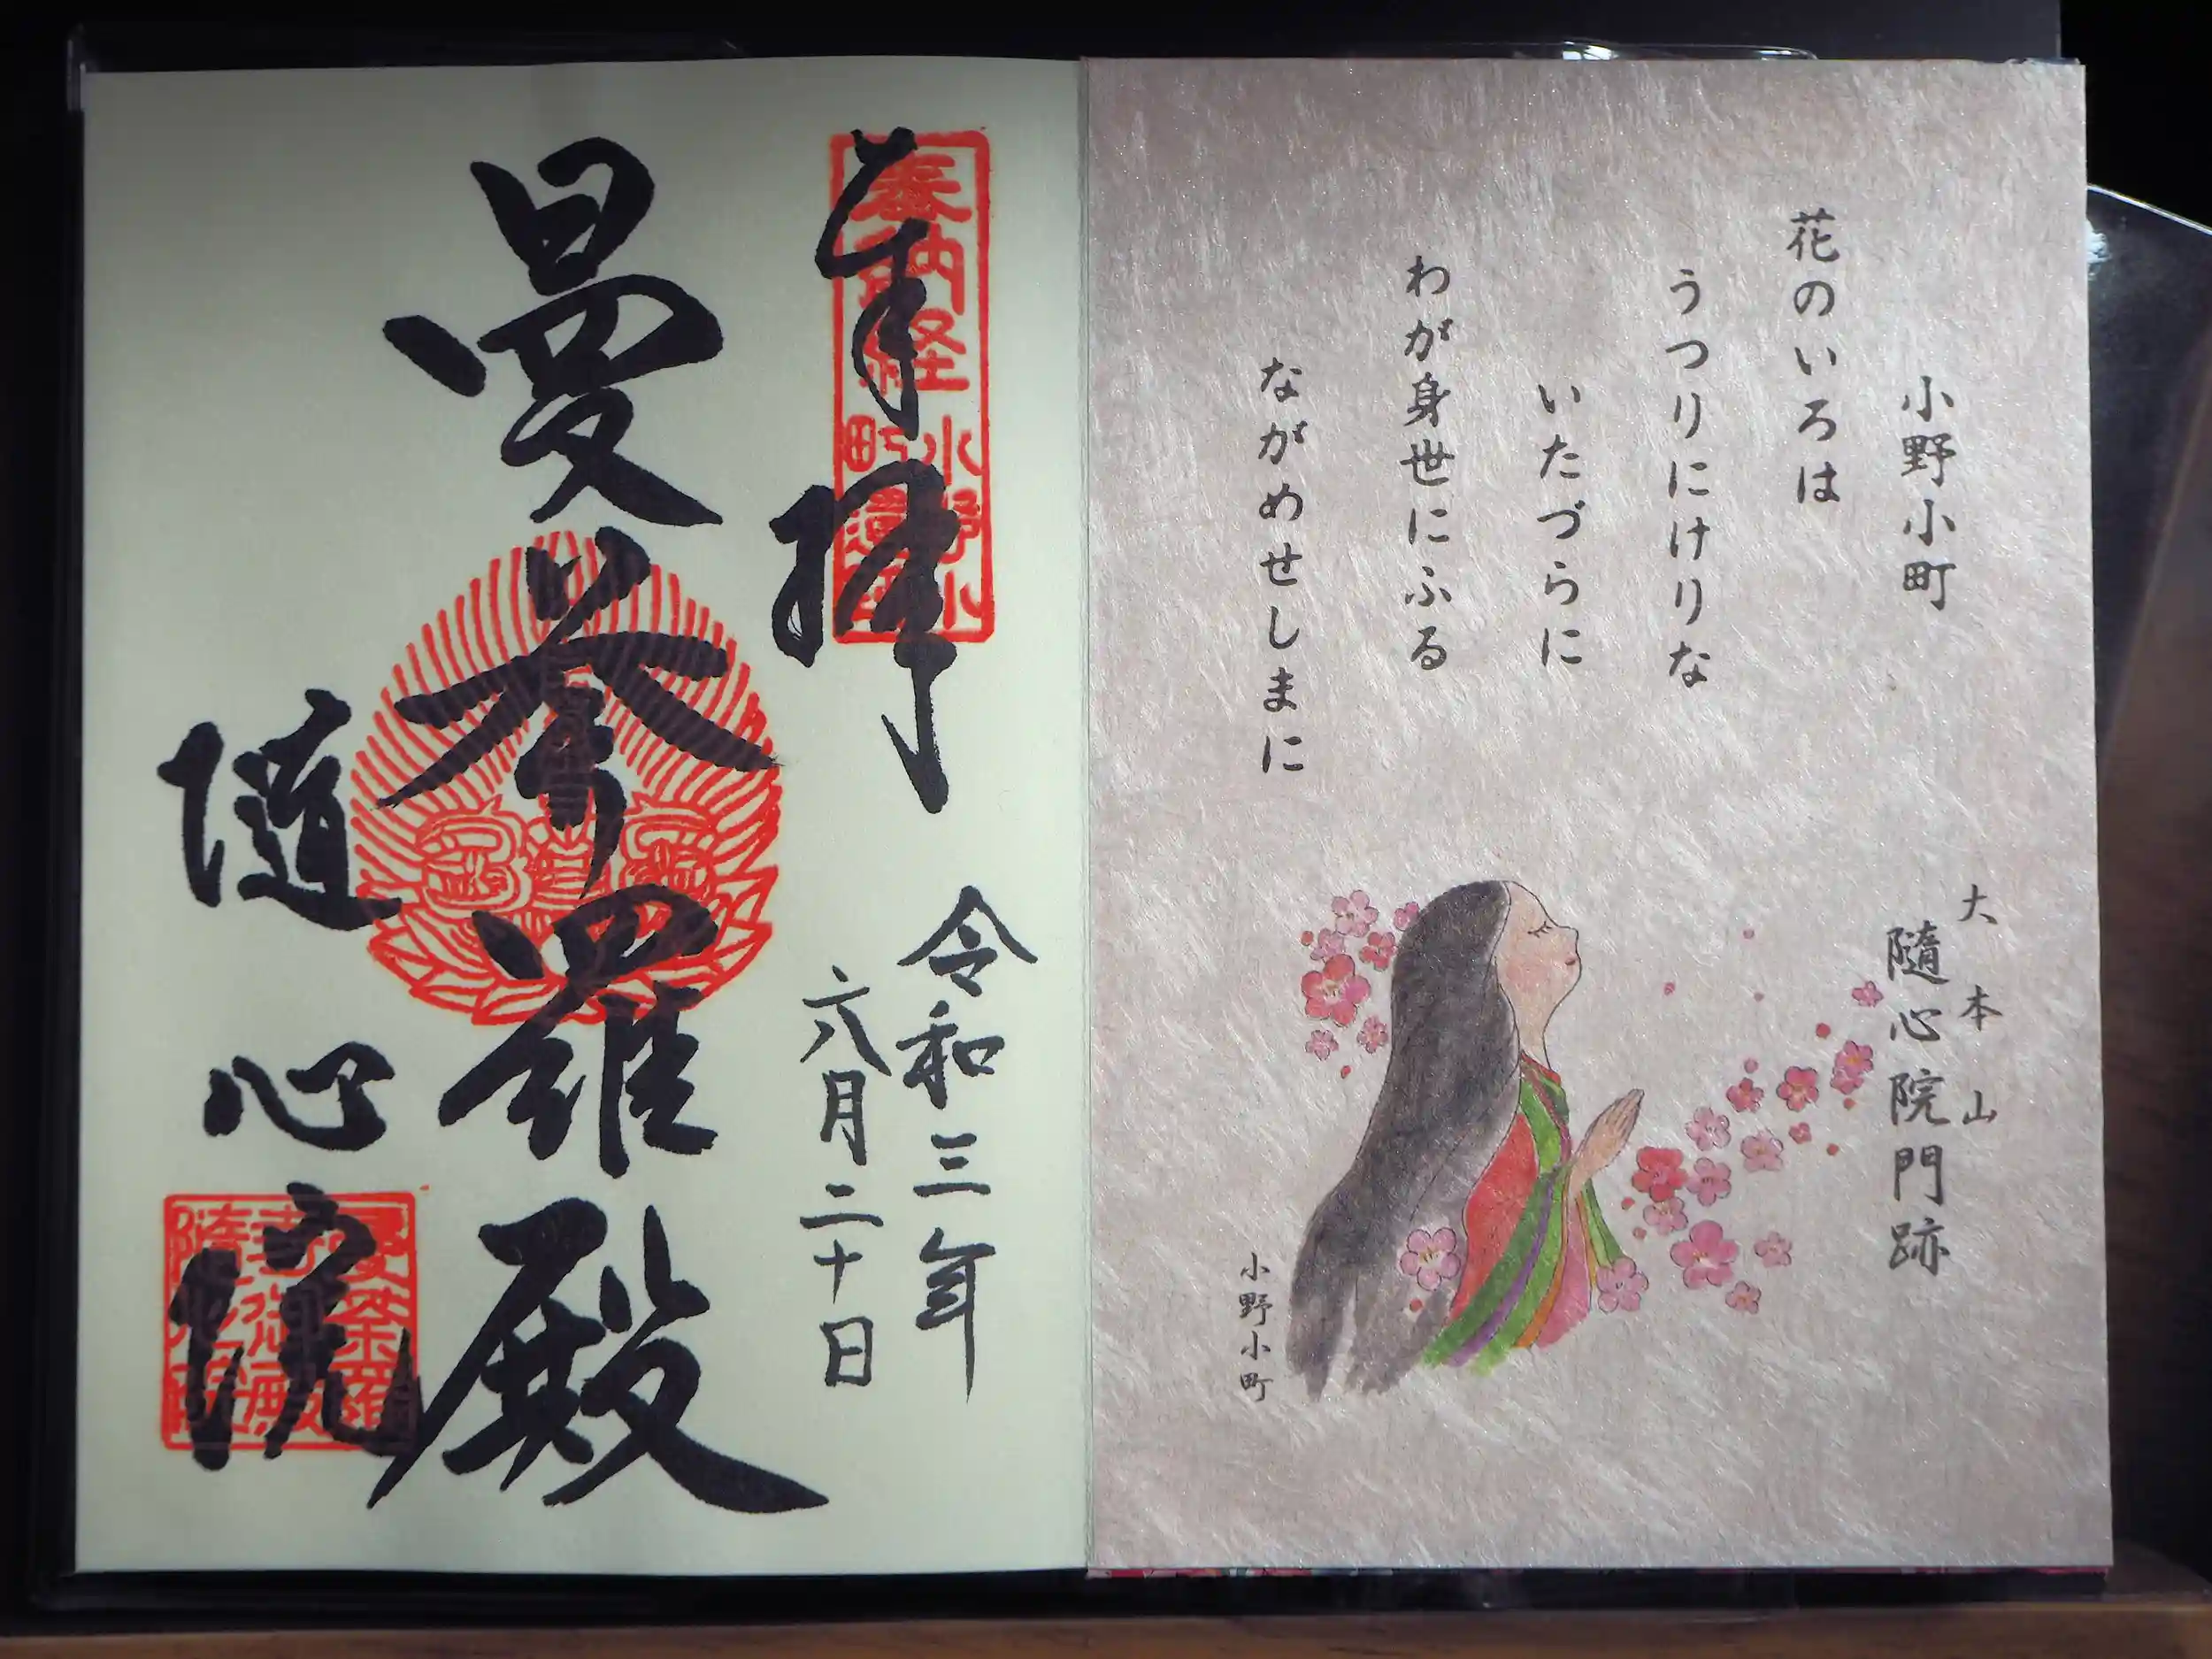 小野小町
花のいろは
うつりにけりな
いたづらに
わが身世にふる
ながめせしまに
大本山
隨心院門跡
小野小町
奉拝
奉納経
小野小
町遺跡
令和三年
六月二十日
曼荼羅殿
隨心院